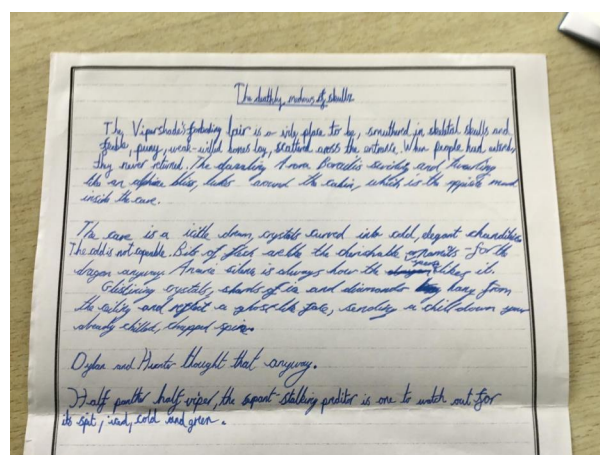 The deathly of skulls
The Vipershade's foreboding lair is a vile place to be, smothered in skeletal skulls and
feeble, puny, weak-willed bones lay, scattered across the entrance. When people had entered,
they never returned. The dazzling Aurora Borealis swirling and twirling
like an alpine bliss lake around the cabin, which is the opposite mood
inside the cave.
The cave is a with drawn, crystals curved into cold, elegant chandeliers
The cold is not capable. Bits of flesh are like the ornaments - for the
dragon anyway. silence is always how the likes it.
Glistining crystals, shards of ice and diamonds hang from
the ceiling and reflect a ghost-like gaze, sending a chill down your
already chilled, chapped spine.
Dylan and Hunter thought that anyway.
Half panther half viper, the serpant-stalking preditor is one to watch out for
its spit, cold and green.